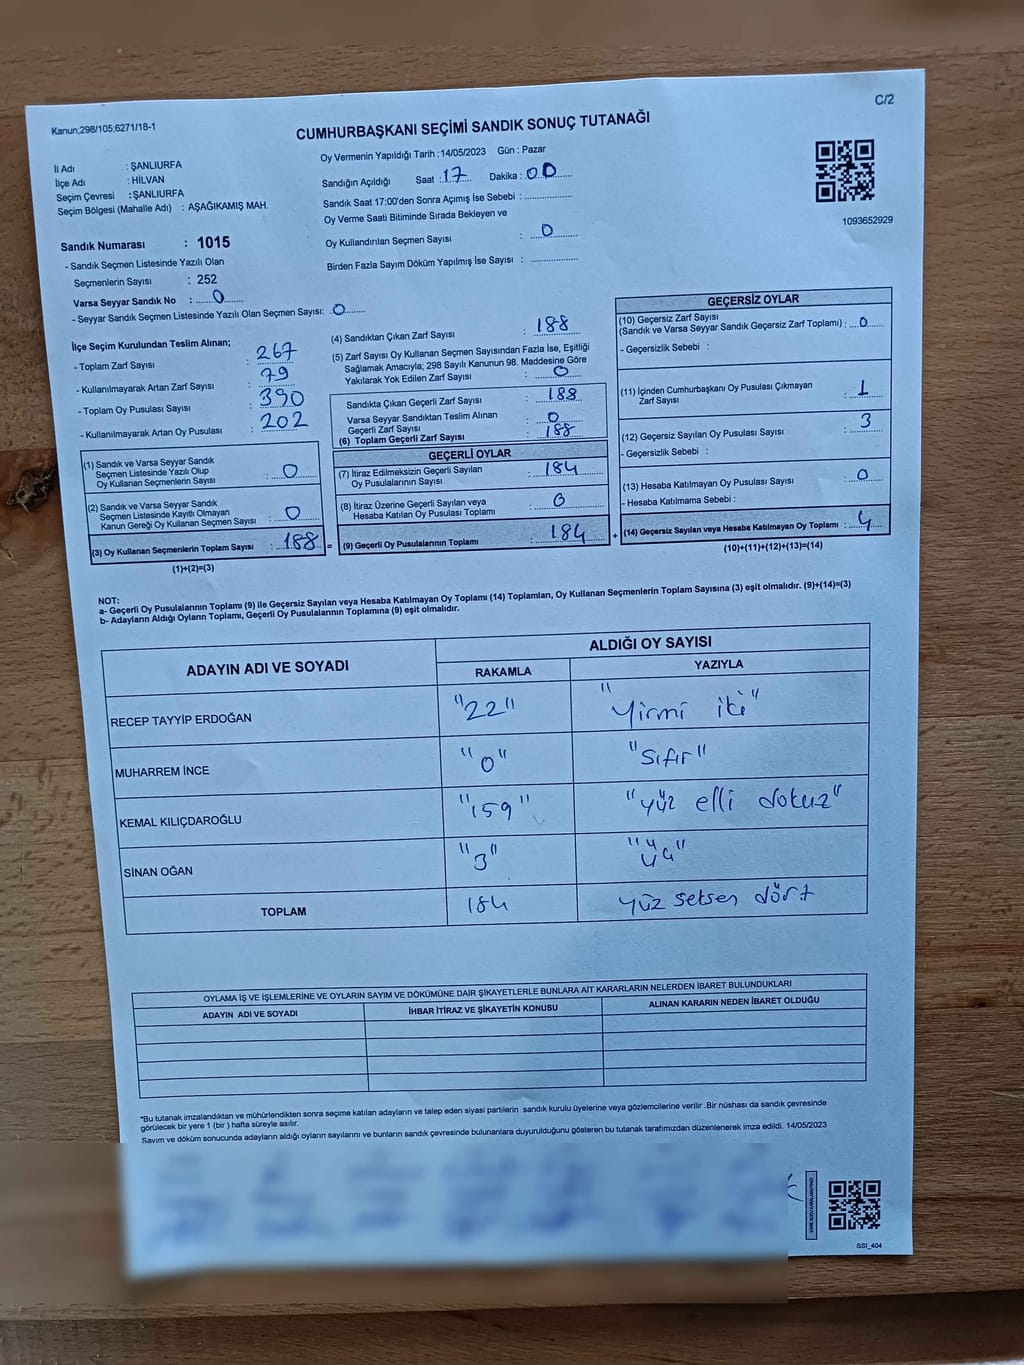 Kanun;298/105;6271/18-1
C/2
CUMHURBAŞKANI SEÇİMİ SANDIK SONUÇ TUTANAĞI
İl Adı : ŞANLIURFA
İlçe Adı : HİLVAN
Seçim Çevresi : ŞANLIURFA
Seçim Bölgesi (Mahalle Adı) : AŞAĞIKAMIŞ MAH.
Oy Vermenin Yapıldığı Tarih : 14/05/2023 Gün : Pazar
Sandığın Açıldığı Saat : 17 Dakika : 00
Sandık Saat 17:00'den Sonra Açımış İse Sebebi :
Oy Verme Saati Bitiminde Sırada Bekleyen ve
Oy Kullandırılan Seçmen Sayısı : 0
Birden Fazla Sayım Döküm Yapılmış İse Sayısı :
1093652929
Sandık Numarası : 1015
- Sandık Seçmen Listesinde Yazılı Olan
Seçmenlerin Sayısı : 252
Varsa Seyyar Sandık No : 0
- Seyyar Sandık Seçmen Listesinde Yazılı Olan Seçmen Sayısı: 0
İlçe Seçim Kurulundan Teslim Alınan;
- Toplam Zarf Sayısı : 267
- Kullanılmayarak Artan Zarf Sayısı : 79
- Toplam Oy Pusulası Sayısı : 390
- Kullanılmayarak Artan Oy Pusulası : 202
(1) Sandık ve Varsa Seyyar Sandık
Seçmen Listesinde Yazılı Olup
Oy Kullanan Seçmenlerin Sayısı : 0
(2) Sandık ve Varsa Seyyar Sandık
Seçmen Listesinde Kayıtlı Olmayan
Kanun Gereği Oy Kullanan Seçmen Sayısı : 0
(3) Oy Kullanan Seçmenlerin Toplam Sayısı : 188 =
(1)+(2)=(3)
(4) Sandıktan Çıkan Zarf Sayısı : 188
(5) Zarf Sayısı Oy Kullanan Seçmen Sayısından Fazla İse, Eşitliği
Sağlamak Amacıyla; 298 Sayılı Kanunun 98. Maddesine Göre
Yakılarak Yok Edilen Zarf Sayısı : 0
Sandıkta Çıkan Geçerli Zarf Sayısı : 188
Varsa Seyyar Sandıktan Teslim Alınan
Geçerli Zarf Sayısı : 0
(6) Toplam Geçerli Zarf Sayısı : 188
GEÇERLİ OYLAR
(7) İtiraz Edilmeksizin Geçerli Sayılan
Oy Pusulasının Sayısı : 184
(8) İtiraz Üzerine Geçerli Sayılan veya
Hesaba Katılan Oy Pusulası Toplamı : 0
(9) Geçerli Oy Pusulalarının Toplamı : 184 +
GEÇERSİZ OYLAR
(10) Geçersiz Zarf Sayısı
(Sandık ve Varsa Seyyar Sandık Geçersiz Zarf Toplamı) : 0
- Geçersizlik Sebebi :
(11) İçinden Cumhurbaşkanı Oy Pusulası Çıkmayan
Zarf Sayısı : 1
(12) Geçersiz Sayılan Oy Pusulası Sayısı : 3
- Geçersizlik Sebebi :
(13) Hesaba Katılmayan Oy Pusulası Sayısı : 0
- Hesaba Katılmama Sebebi :
(14) Geçersiz Sayılan veya Hesaba Katılmayan Oy Toplamı : 4
(10)+(11)+(12)+(13)=(14)
NOT:
a- Geçerli Oy Pusulalarının Toplamı (9) ile Geçersiz Sayılan veya Hesaba Katılmayan Oy Toplamı (14) Toplamları, Oy Kullanan Seçmenlerin Toplam Sayısına (3) eşit olmalıdır. (9)+(14)=(3)
b- Adayların Aldığı Oyların Toplamı, Geçerli Oy Pusulalarının Toplamına (9) eşit olmalıdır.
ADAYIN ADI VE SOYADI
ALDIĞI OY SAYISI
RAKAMLA YAZIYLA
RECEP TAYYİP ERDOĞAN "22" "yirmi iki"
MUHARREM İNCE "0" "sıfır"
KEMAL KILIÇDAROĞLU "159" "yüz elli dokuz"
SİNAN OĞAN "3" "üç"
TOPLAM 184 yüz seksen dört
OYLAMA İŞ VE İŞLEMLERİNE VE OYLARIN SAYIM VE DÖKÜMÜNE DAİR ŞİKAYETLERLE BUNLARA AİT KARARLARIN NELERDEN İBARET BULUNDUKLARI
ADAYIN ADI VE SOYADI İHBAR İTİRAZ VE ŞİKAYETİN KONUSU ALINAN KARARIN NEDEN İBARET OLDUĞU
*Bu tutanak imzalandıktan ve mühürlendikten sonra seçime katılan adayların ve talep eden siyasi partilerin sandık kurulu üyelerine veya gözlemcilerine verilir .Bir nüshası da sandık çevresinde
görülecek bir yere 1 (bir ) hafta süreyle asılır.
Sayım ve döküm sonucunda adayların aldığı oyların sayılarını ve bunların sandık çevresinde bulunanlara duyurulduğunu gösteren bu tutanak tarafımızdan düzenlenerek imza edildi. 14/05/2023
SSI_404